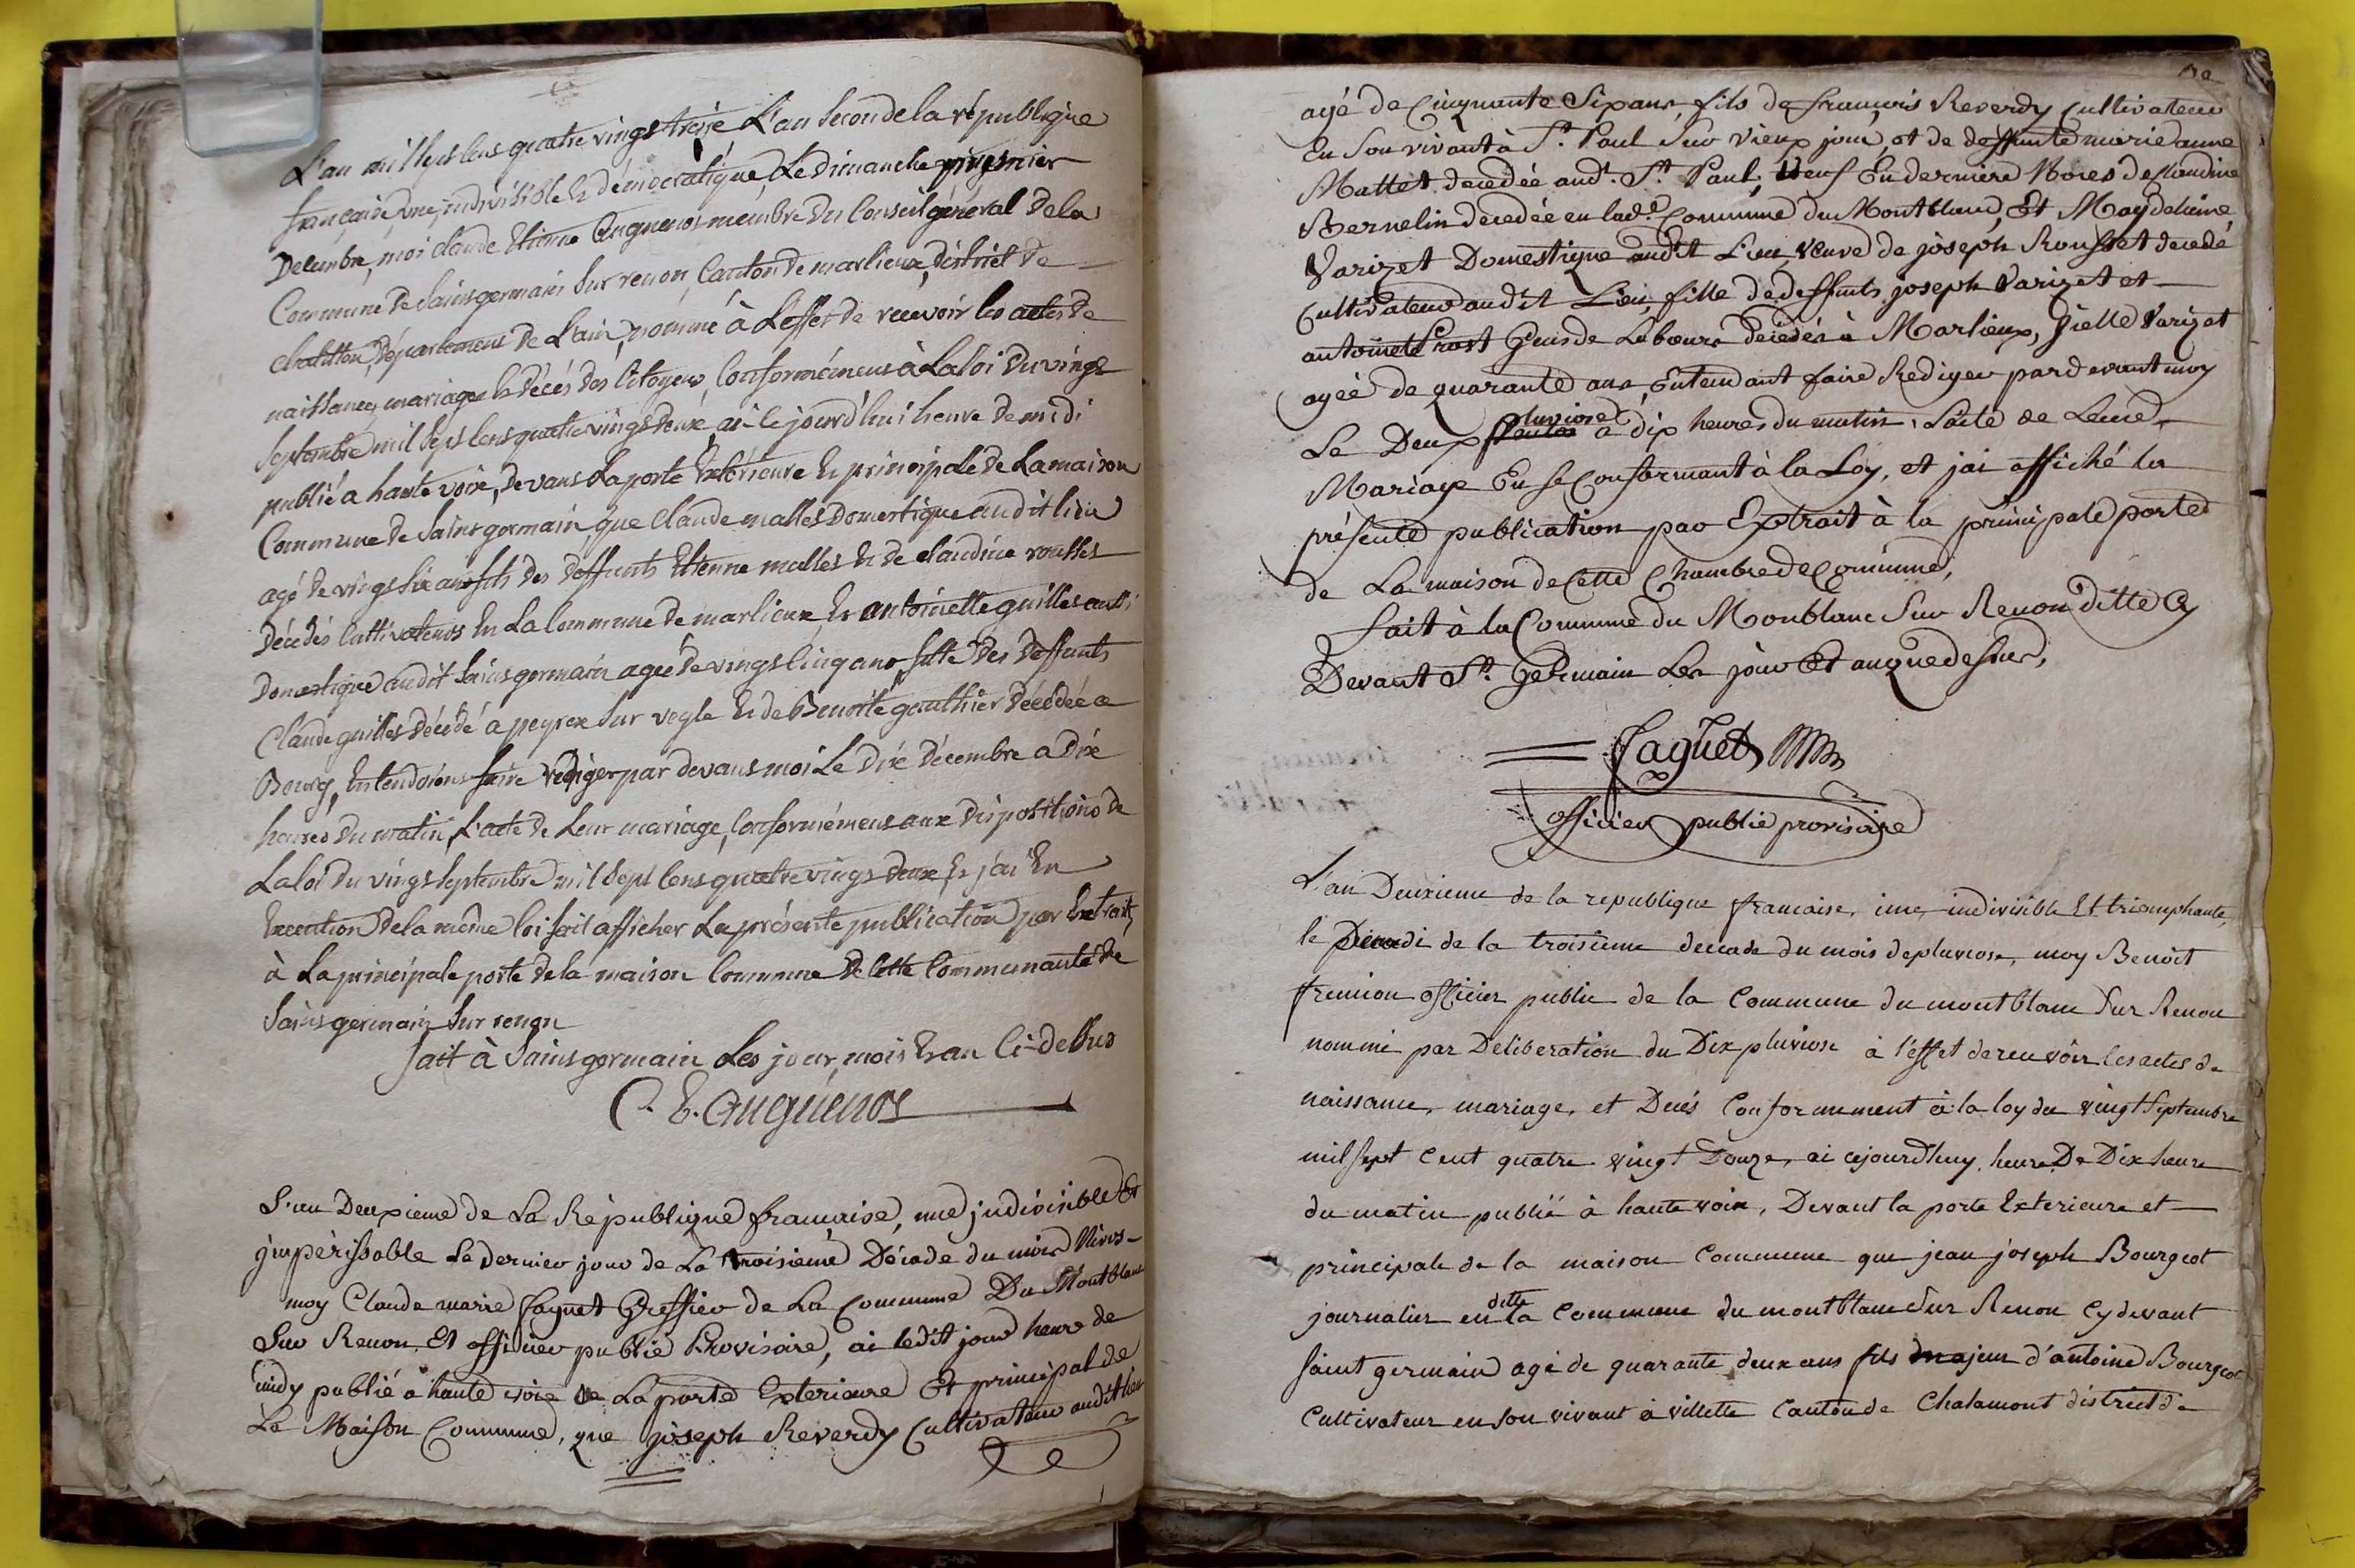 L'an mil sept cens quatre vingt treize L'an second de la république
française, une, indivisible & démocratique, Le dimanche premier
Décembre, moi claude Etienne Anguenos membre du Conseil général de la
Commune de saint germain sur renon, Canton de marlieux, district de
chatillon, département de L'ain, nommé à L'effet de recevoir les actes de
naissance, mariage & décès des Citoyens, Conformémens à La loi du vingt
septembre mil sept cens quatre vingt douze, ai ce jourd'hui heure de midi
publié a haute voix, devans La porte Extérieure & principale de La maison
Commune de saint germain, que Claude malles Domestique audit lieu
agé de vingt six ans fils des deffunts Etienne malles & de claudine rousses
décédés Cultivateurs En La Commune de marlieux & antoinette guilles aussi
Domestique audit saint germain agée de vingt cinq ans, fille des deffunts
Claude guilles décédé a peyrex sur vegle & de Benoite gauthier décédée a
Bourg, Entendoient faire rédiger par devans moi Le dix décembre a dix
heures du matin, L'acte de Leur mariage, Conformémens aux dispositions de
La loi du vingt septembre mil sept cens quatre vingt douze, & j'ai En
Execution de la même loi fait afficher La présente publication par Extrait,
à La principale porte de la maison Commune de Cette Communauté de
saint germain sur renon
fait à saint germain Les jour, mois & an Ci-dessus
C. E. Anguenos
L'an Deuxieme de La République française, une jndivisible Et
jmpérissable Le dernier jour de La troisieme Décade du mois Nivos-
moy Claude marie faguet Greffier de La Commune Du Montblanc
Sur Renon, Et officier public Provisoire, ai ledit jour heure de
midy publié a haute voix La porte Exterieure Et principal de
La Maison Commune, que joseph Reverdy Cultivateur audit lieu
agé de Cinquante Six ans, fils de françois Reverdy Cultivateur
En Son vivant à St. Paul Sur Vieux jour, et de deffunte marie anne
Mallet decedée audt. St. Paul, Veuf En derniere Noces de Claudine
Bernelin decedée en lade. Commune du Montblanc, Et Magdeleine
Varizet Domestique audit Lieu, veuve de jòseph Rousset decedé
Cultivateur audit Lieu, fille de deffunts joseph Varizet et
antoinette Prost Gens de Labeurs décédés à Marlieux, Varizet
agée de quarante ans, Entendant faire Rediger pardevant moy
Le Deux pluviose à dix heures du matin, L'acte de Leur
Mariage En se Conformant à la Loy, et jai affiché la
présente publication par Extrait à la principale porte
de La maison de Cette Chambre de Commune,
fait à la Commune du Monblanc Sur Renon ditte Cy
Devant St. Germain Les jour Et an que dessus,
faguet
officier public provisoire
L'an Deuxieme de la republique francaise, une, indivisible Et triomphante,
le Decadi de la troisieme decade du mois de pluviose, moy Benoit
fremion officier public de la Commune du montblanc Sur Renon
nommé par Deliberation du Dix pluviose à l'effet de recevoir les actes de
naissance, mariage, et Decés Conformement à la loy du vingt Septembre
mil sept Cent quatre vingt Douze, ai cejourd'huy, heure De Dix heure
du matin publié à haute voix, Devant la porte Exterieure et
principale de la maison Commune que jean joseph Bourgeot
journalier en dtte la Commune du montblanc Sur Renon Cy devant
saint germain agé de quarante deux ans fils majeur d'antoine Bourgeot
Cultivateur en son vivant à villette Canton de Chalamont district de